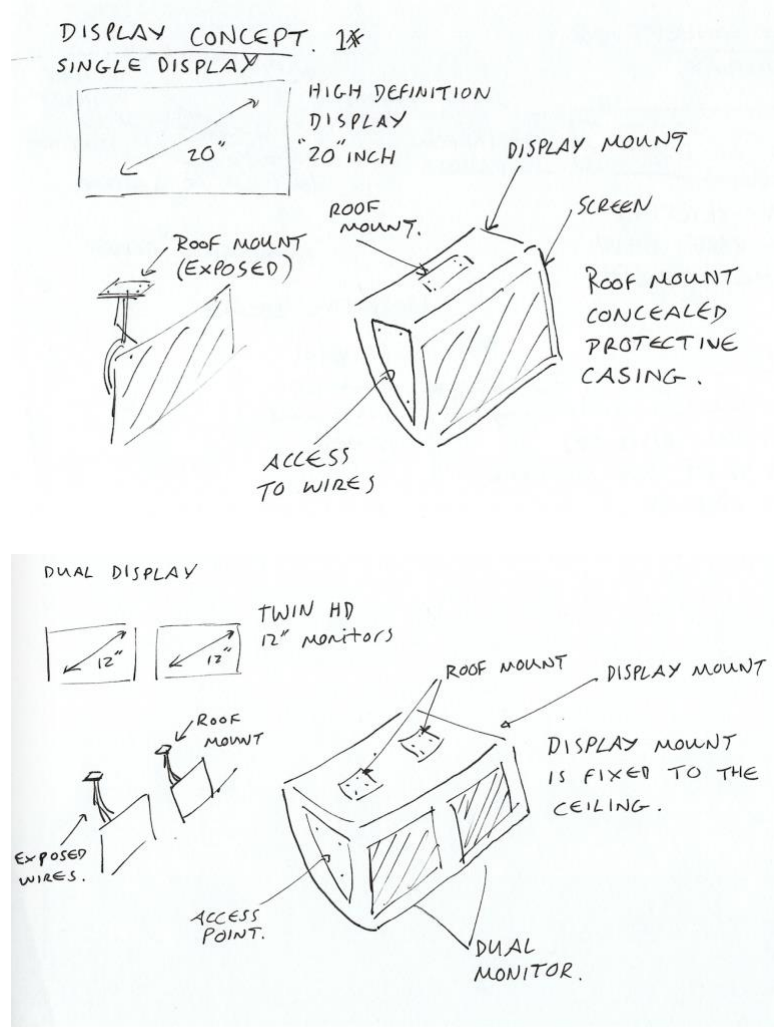 DISPLAY CONCEPT. 1*
SINGLE DISPLAY
20"
HIGH DEFINITION
DISPLAY
"20" INCH
DISPLAY MOUNT
ROOF
MOUNT.
SCREEN
ROOF MOUNT
(EXPOSED)
ROOF MOUNT
CONCEALED
PROTECTIVE
CASING.
ACCESS
TO WIRES
DUAL DISPLAY
12"
12"
TWIN HD
12" monitors
ROOF MOUNT
DISPLAY MOUNT
ROOF
MOUNT
DISPLAY MOUNT
IS FIXED TO THE
CEILING.
EXPOSED
WIRES.
ACCESS
POINT.
DUAL
MONITOR.